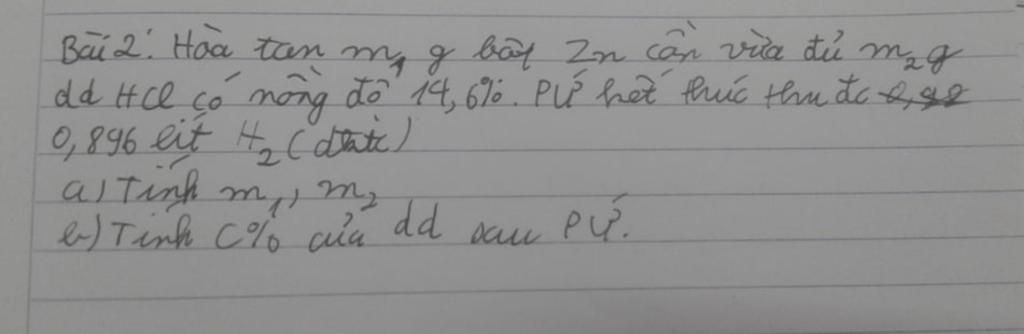 Bài 2: Hòa tan m₁ g bột Zn cần vừa đủ m₂g
dd HCl có nồng độ 14,6%. PƯ kết thúc thu đc
0,896 lít H₂ (đktc)
a) Tính m₁, m₂
b) Tính C% của dd sau PƯ.